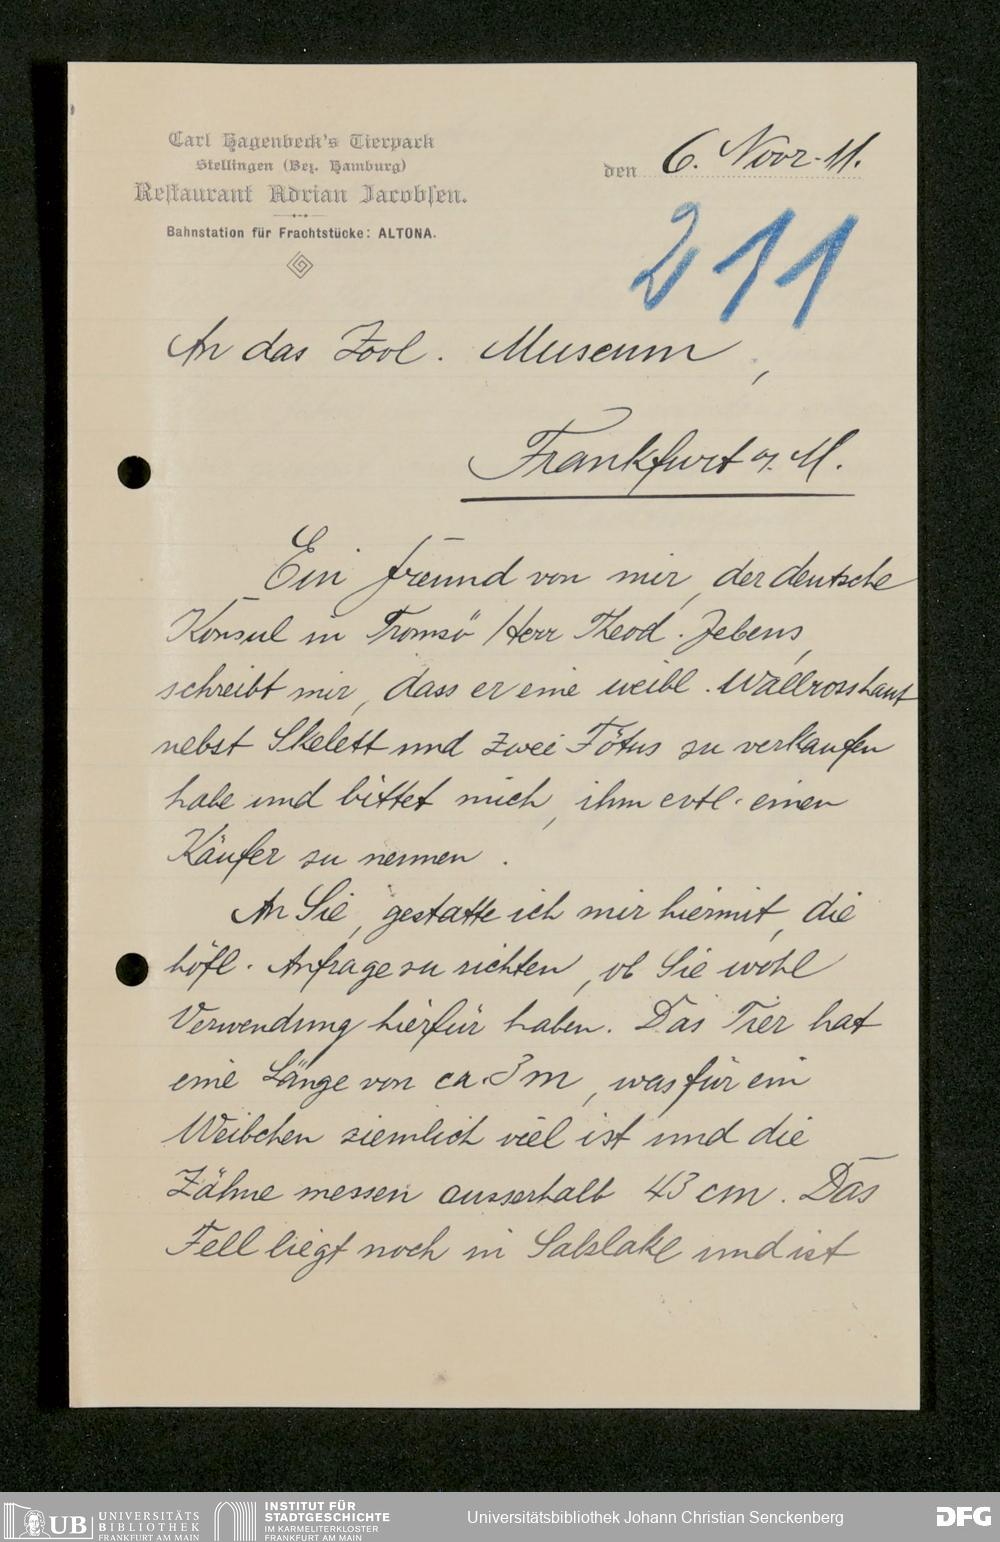 Carl Hagenbeck's Tierpark
Stellingen (Bez. Hamburg)
Restaurant Adrian Jacobsen.
Bahnstation für Frachtstücke: ALTONA.
den 6. Novr. 11.
211
An das Zool. Museum,
Frankfurt a. M.
Ein freund von mir, der deutsche
Konsul in Tromsö Herr Theod. Jebens,
schreibt mir, dass er eine weibl. Wallrosshaut
nebst Skelett und zwei Fötus zu verkaufen
habe und bittet mich, ihm evtl. einen
Käufer zu nennen.
An Sie, gestatte ich mir hiermit, die
höfl. Anfrage zu richten, ob Sie wohl
Verwendung hierfür haben. Das Tier hat
eine Länge von ca. 3 m, was für ein
Weibchen ziemlich viel ist und die
Zähne messen ausserhalb 43 cm. Das
Fell liegt noch in Salzlake und ist
UB UNIVERSITÄTS
BIBLIOTHEK
FRANKFURT AM MAIN
INSTITUT FÜR
STADTGESCHICHTE
IM KARMELITERKLOSTER
FRANKFURT AM MAIN
Universitätsbibliothek Johann Christian Senckenberg
DFG